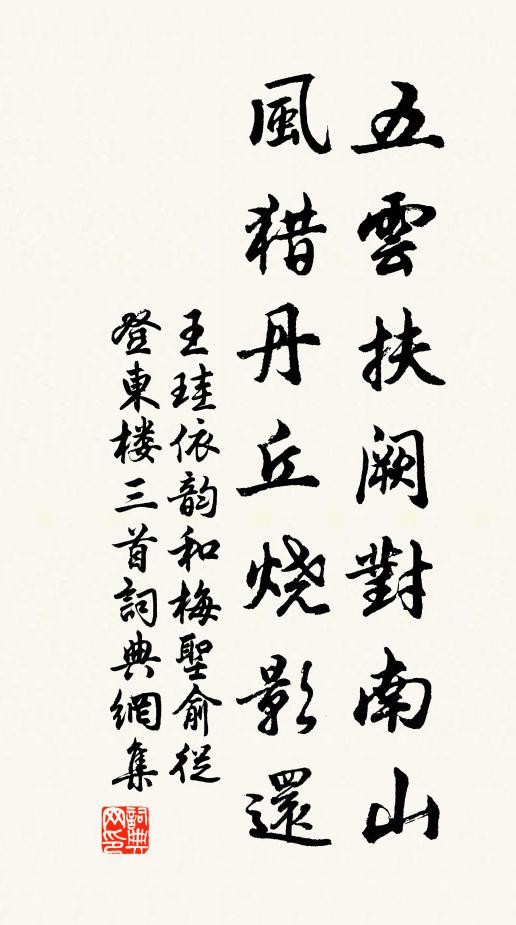 五雲扶闕對南山
風猎丹丘烧影還
王珪依韵和梅聖俞從
登東楼三首詞典網集
詞典网印